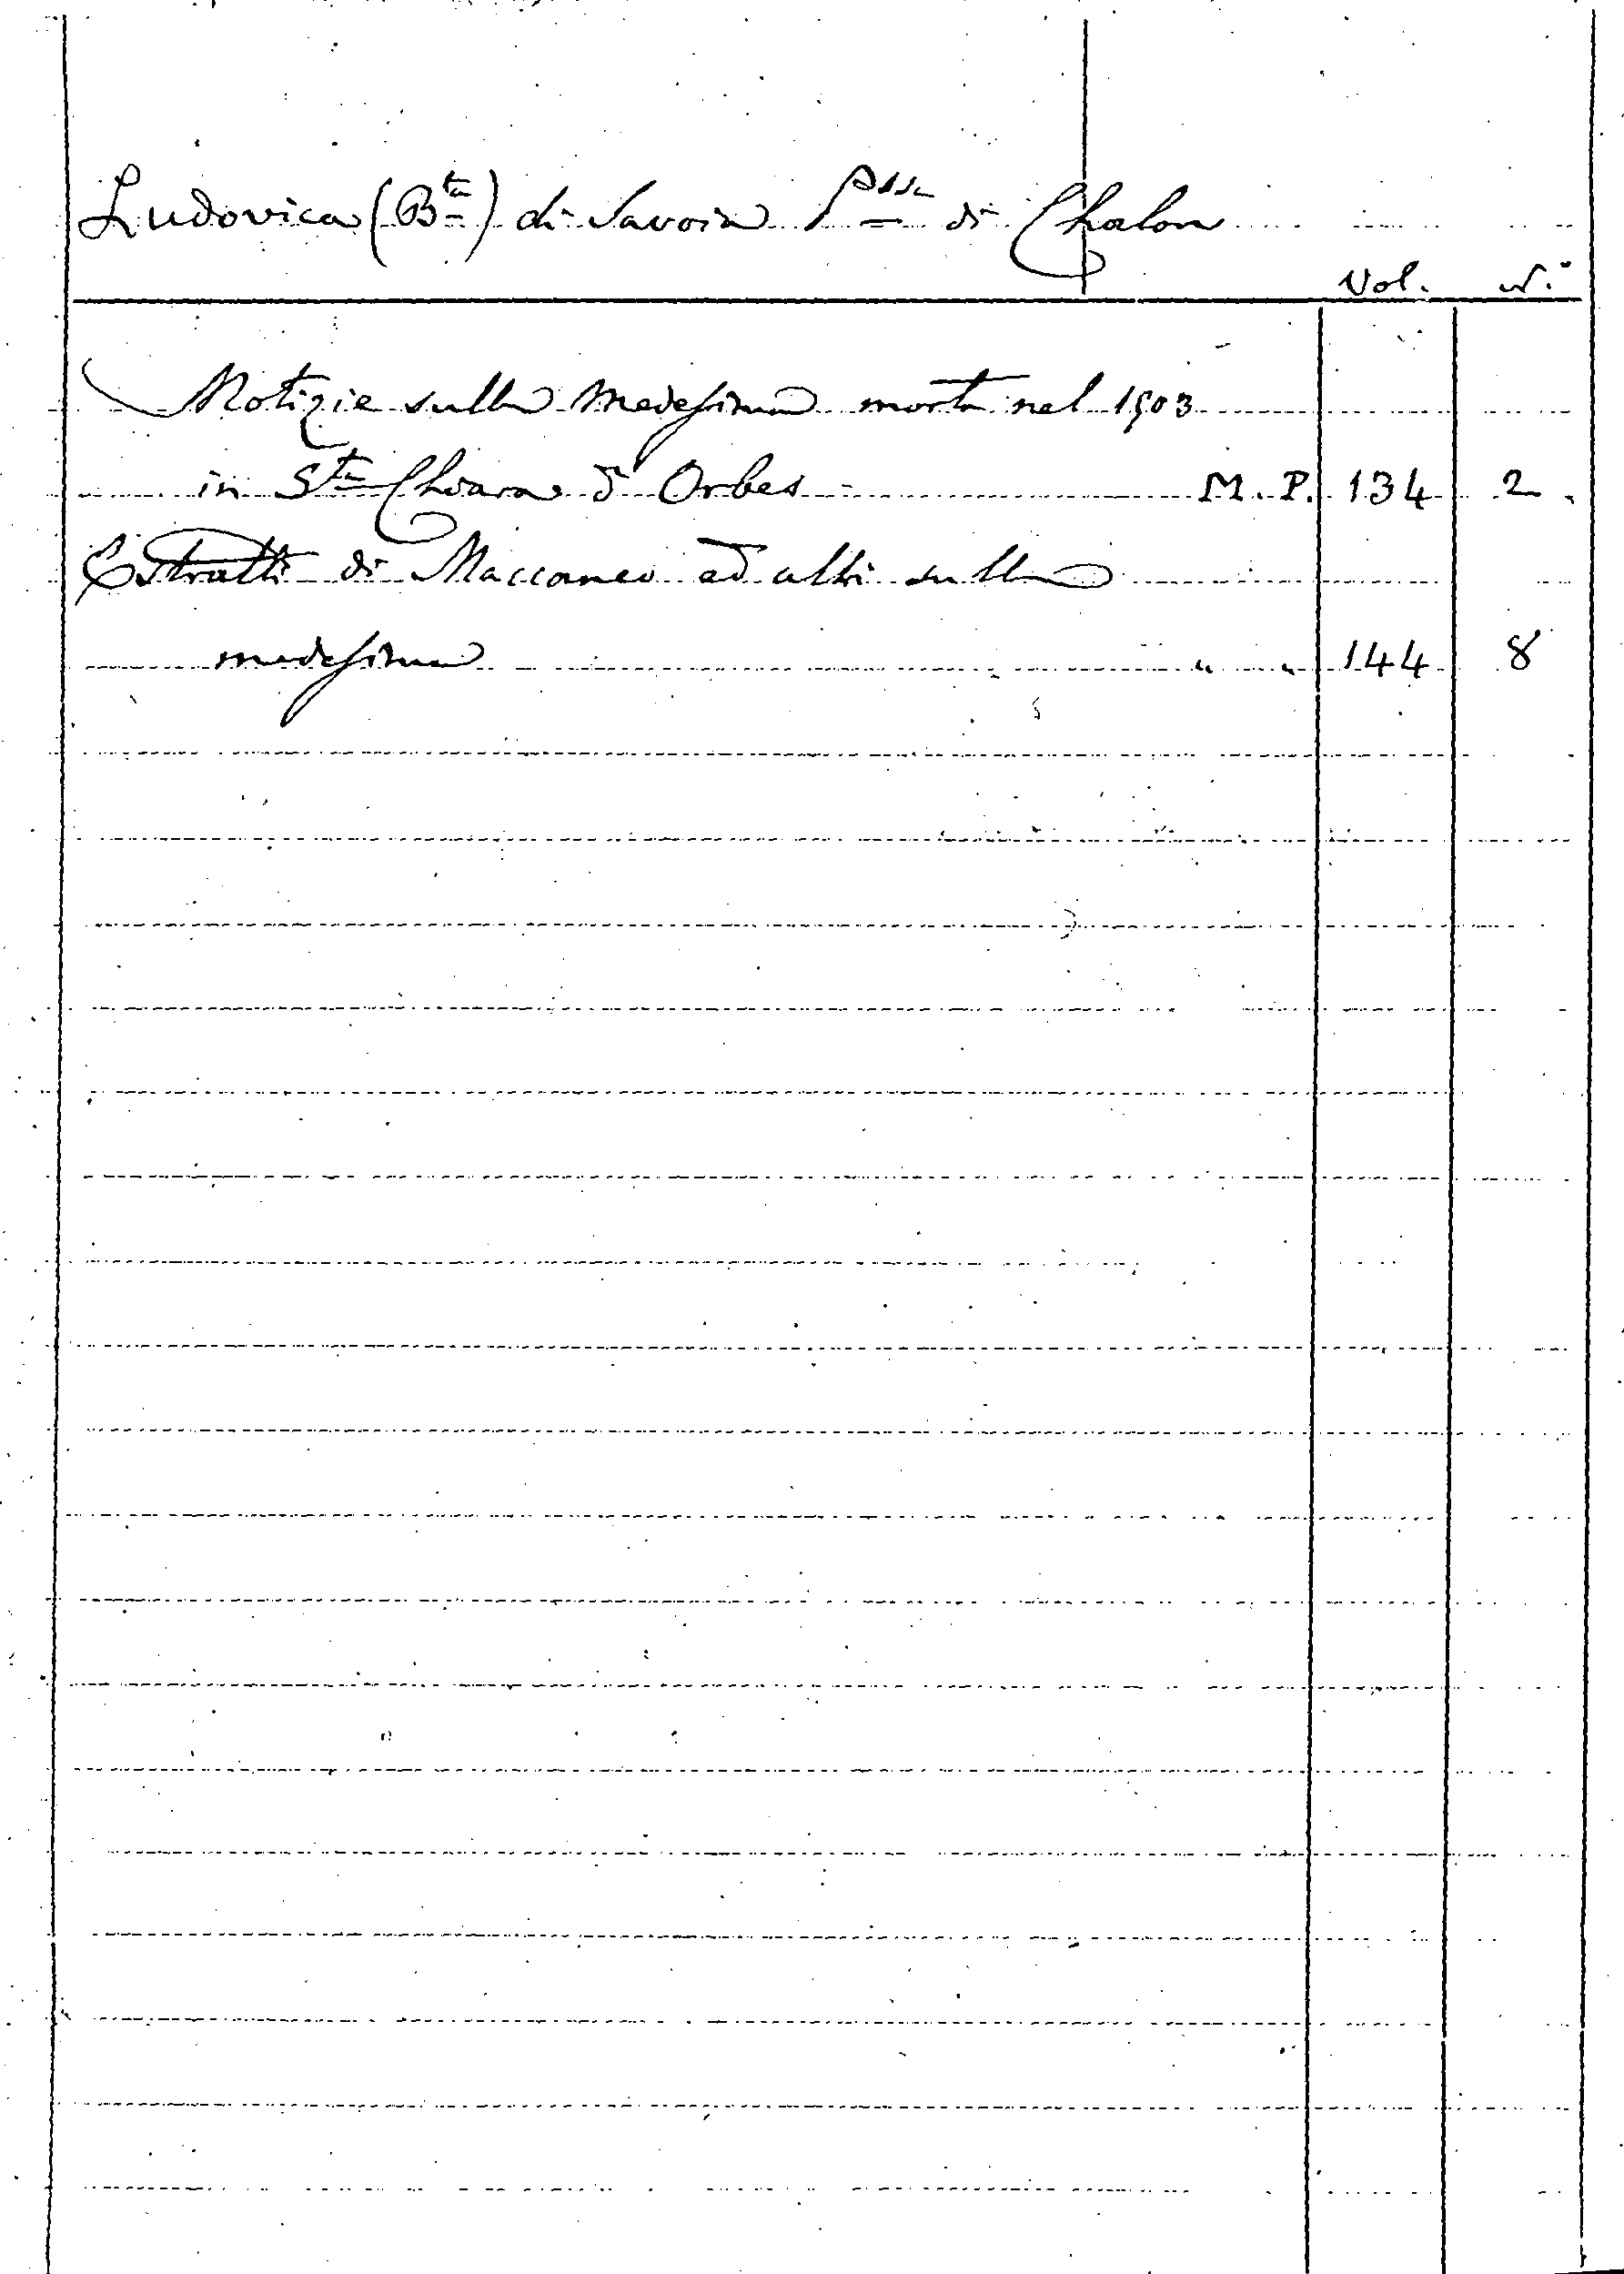 Ludovica (Bta) di Savoia Pssa di Chalon
Vol. N.°
Notizie sulla medesima morta nel 1503
in Sta Chiara d'Orbes M. P. 134 2.
Estratti di Maccaneo ed altri sulla
medesima " " 144 8